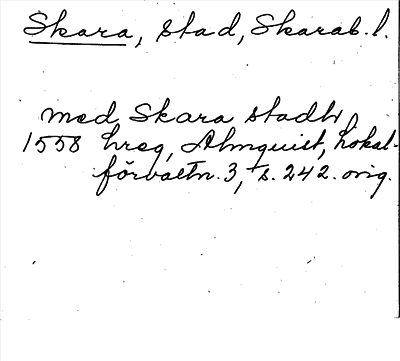 Skara, stad, Skarab. l.
med Skara stadh
1558 hreg, Almquist, Lokal-
förvaltn. 3, s. 242. orig.